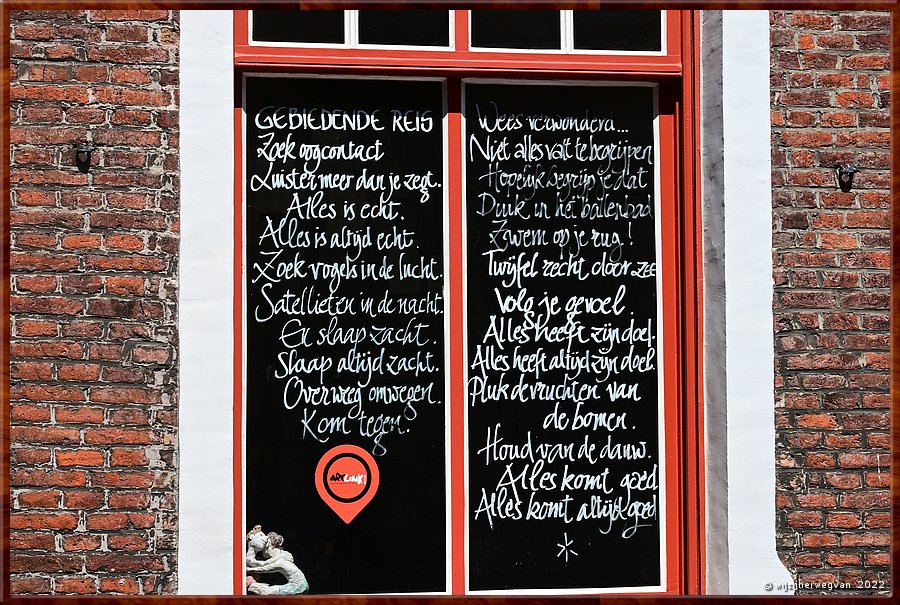 GEBIEDENDE REIS
Zoek oogcontact
Luister meer dan je zegt.
Alles is echt.
Alles is altijd echt.
Zoek vogels in de lucht.
Satellieten in de nacht.
En slaap zacht.
Slaap altijd zacht.
Overweg omwegen.
Kom tegen.
ARTLINK
Wees verwonderd...
Niet alles valt te begrijpen
Hopelijk begrijp je dat
Duik in het ballenbad
Zwem op je rug!
Twijfel recht door zee
Volg je gevoel.
Alles heeft zijn doel.
Alles heeft altijd zijn doel.
Pluk de vruchten van
de bomen.
Houd van de dauw.
Alles komt goed
Alles komt altijd goed
© wijzijnerwegvan 2022